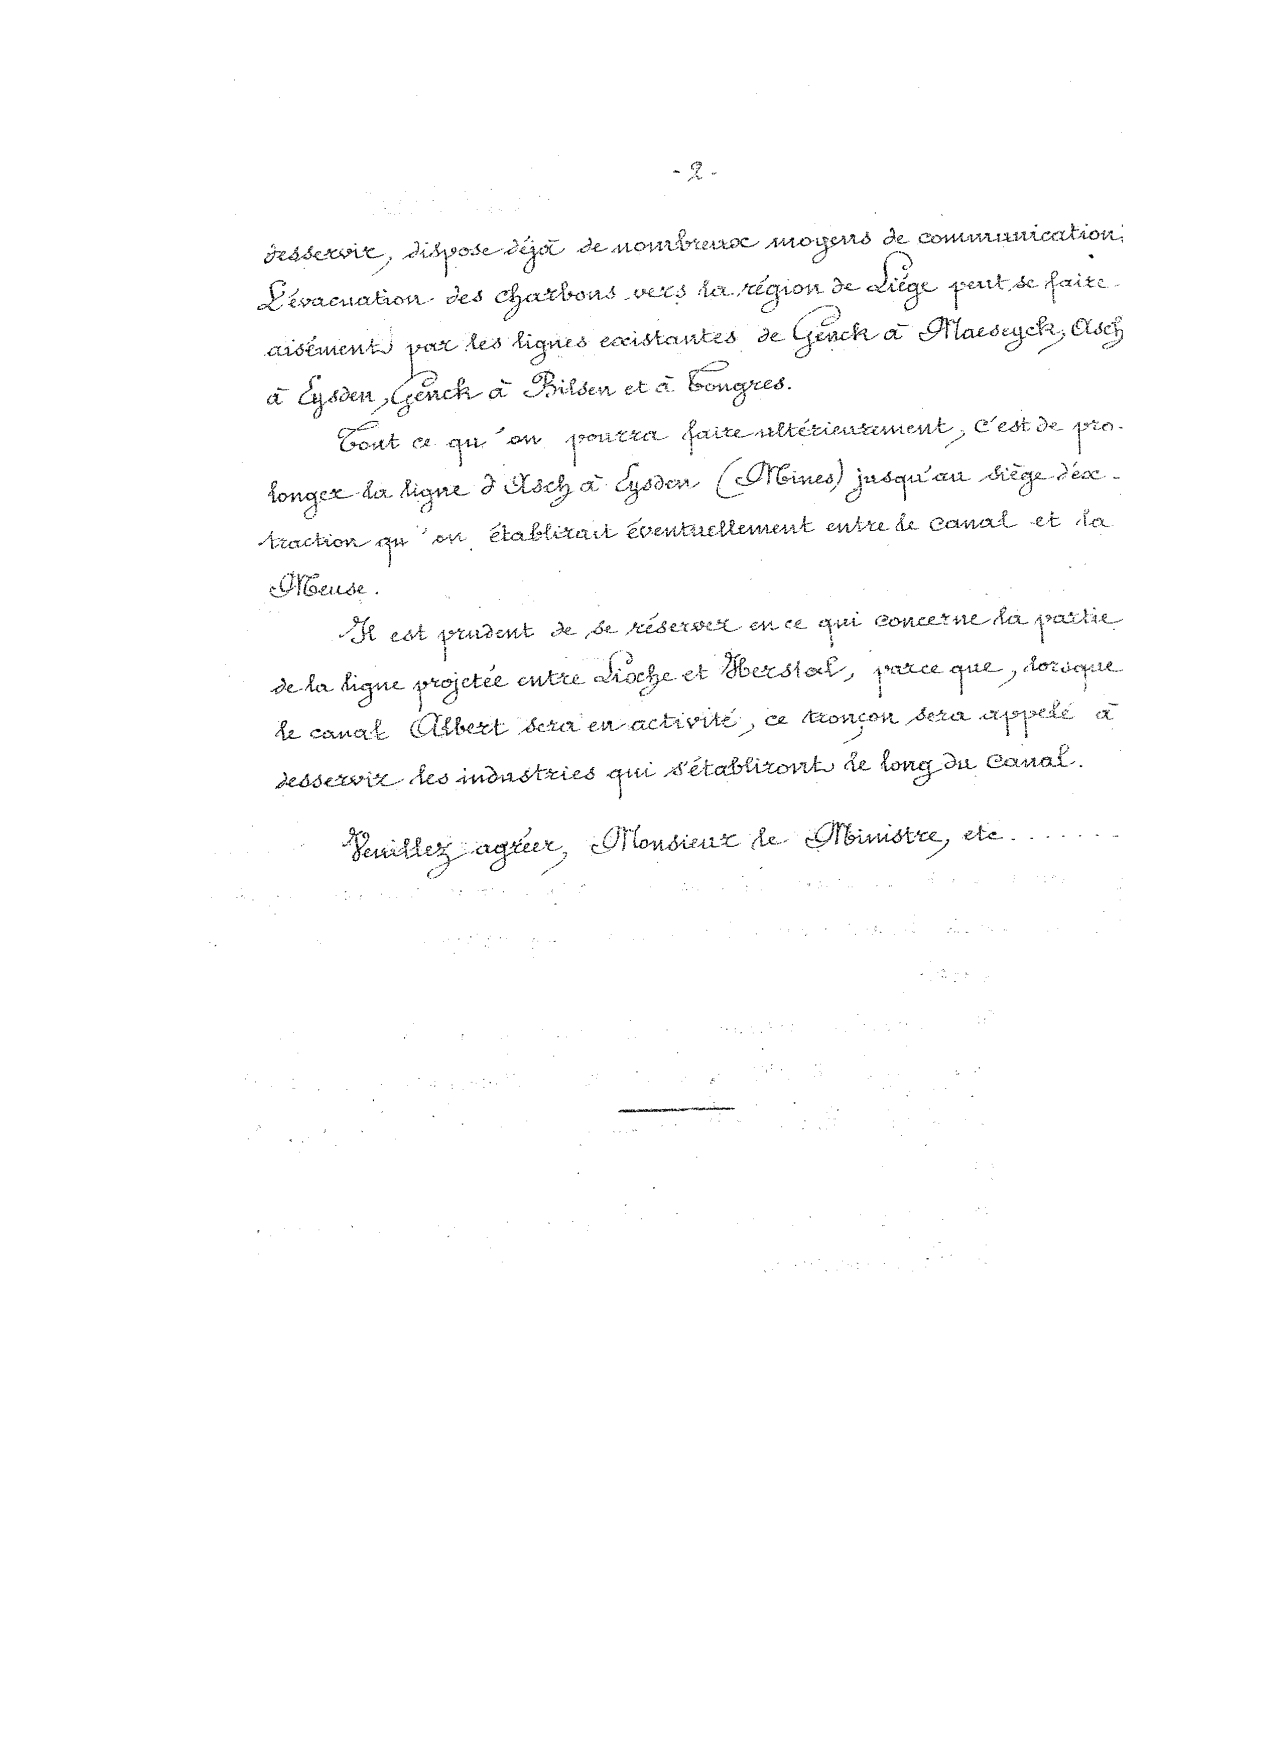 - 2 -
desservir, dispose déjà de nombreux moyens de communication;
L'évacuation des charbons vers la région de Liége peut se faire
aisément par les lignes existantes de Genck à Maeseyck, Asch
à Eysden, Genck à Bilsen et à Tongres.
Tout ce qu'on pourra faire ultérieurement, c'est de pro-
longer la ligne d'Asch à Eysden (Mines) jusqu'au siège d'ex-
traction qu'on établirait éventuellement entre le canal et la
Meuse.
Il est prudent de se réserver en ce qui concerne la partie
de la ligne projetée entre Lixhe et Herstal, parce que, lorsque
le canal Albert sera en activité, ce tronçon sera appelé à
desservir les industries qui s'établiront le long du canal.
Veuillez agréer, Monsieur le Ministre, etc.......